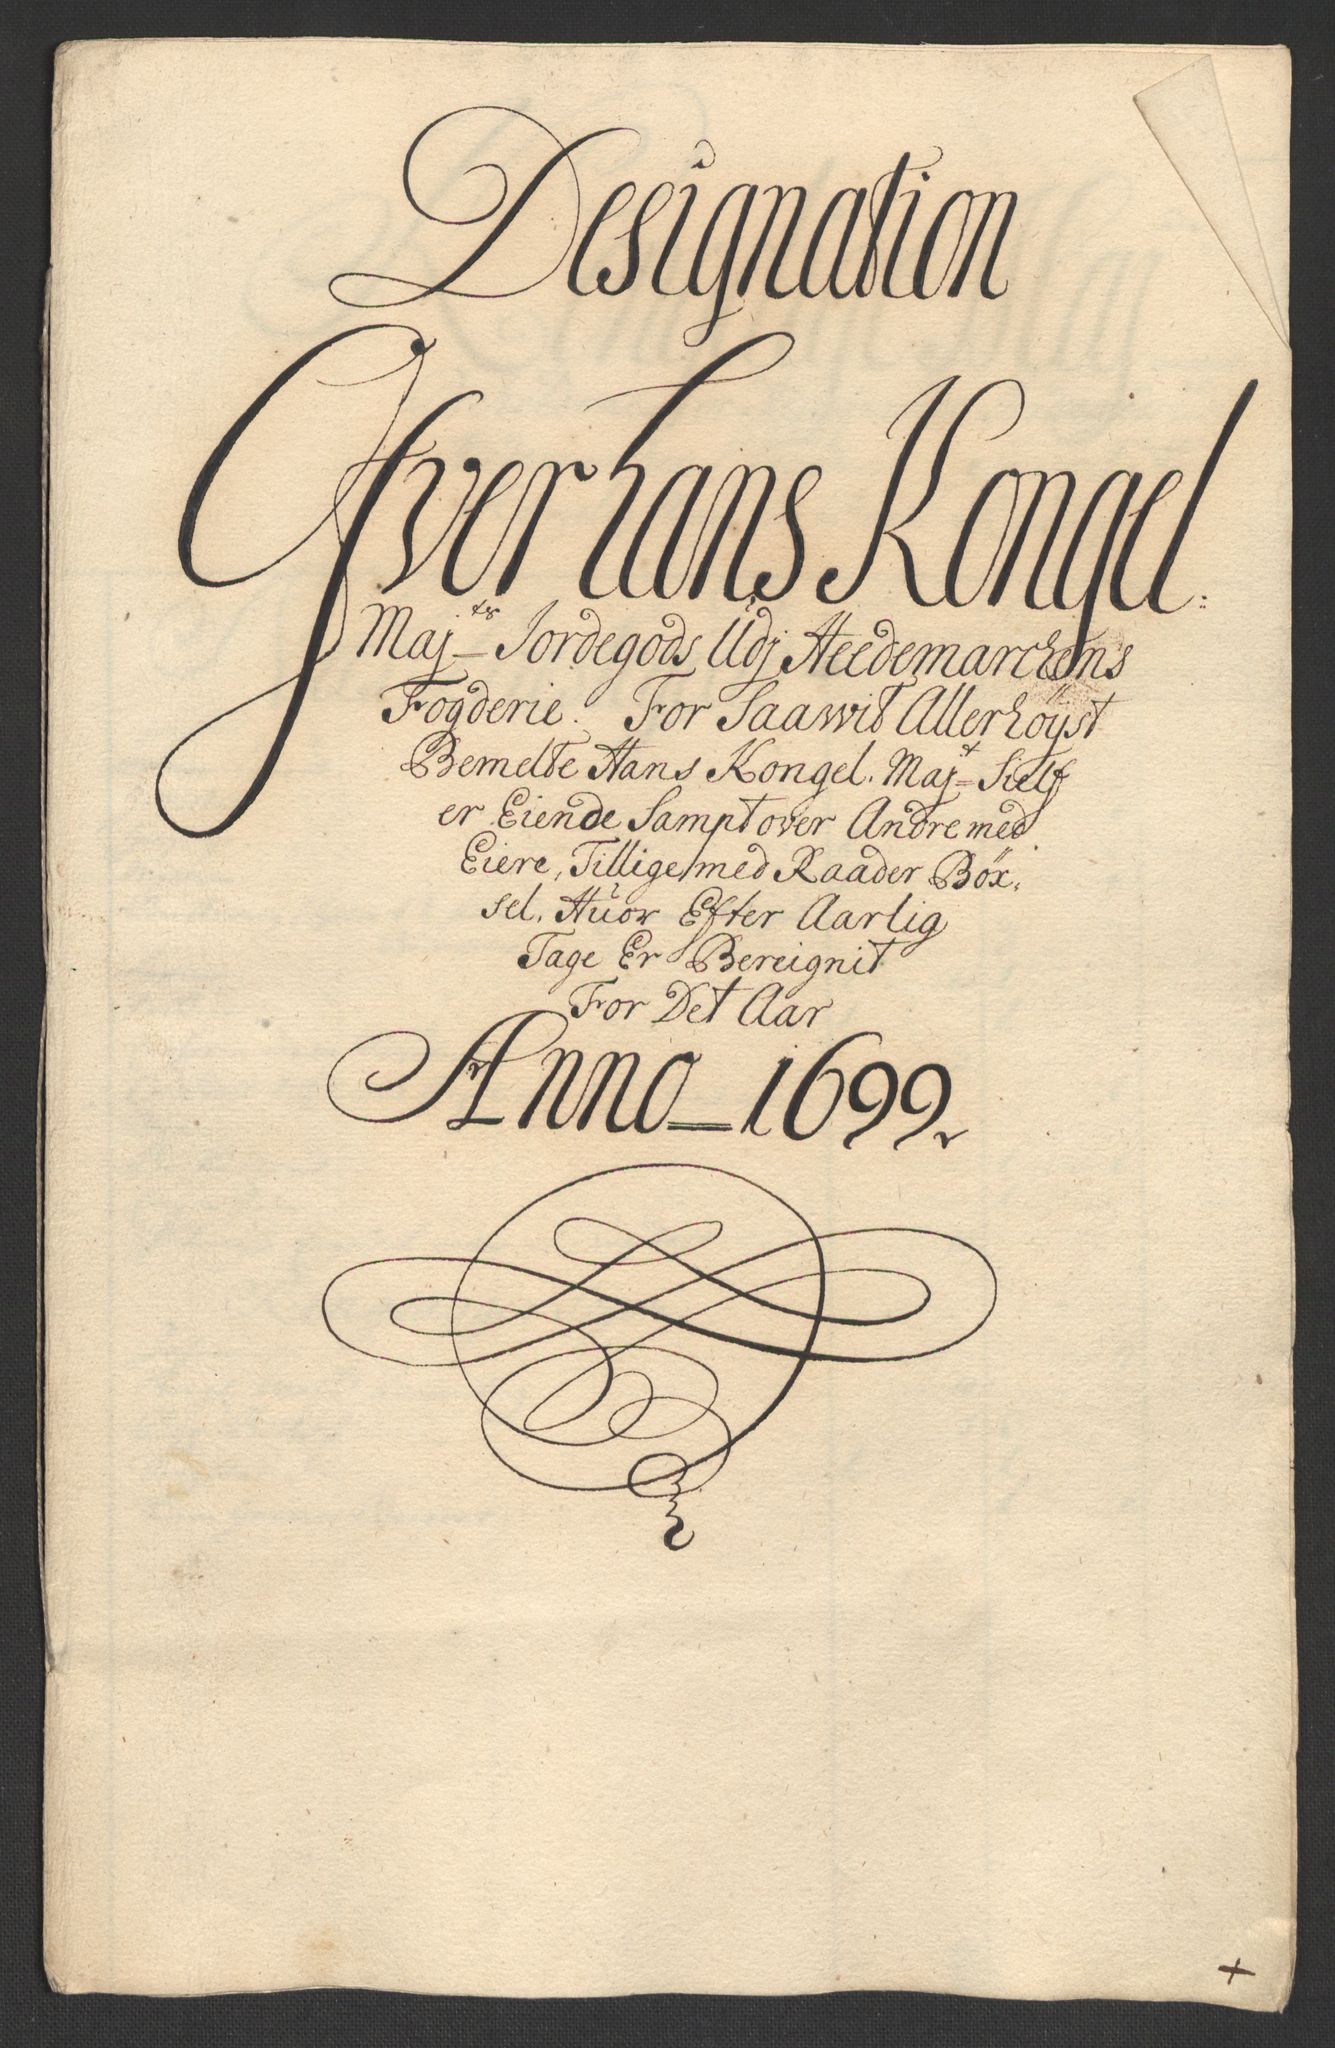 Designation
Ofver hans Kongel:
Maj.ts Jordegods Udj Heedemarchens
Fogderie. For Saawit Allerhöyst
Bemelte Hans Kongel. Maj.t Sielf
er Eiende Sampt over Andre med
Eiere, Tillige med Raader Böx,
sel. Huor Efter Aarlig
Tage Er Bereignit
For Det Aar
Anno 1699
+